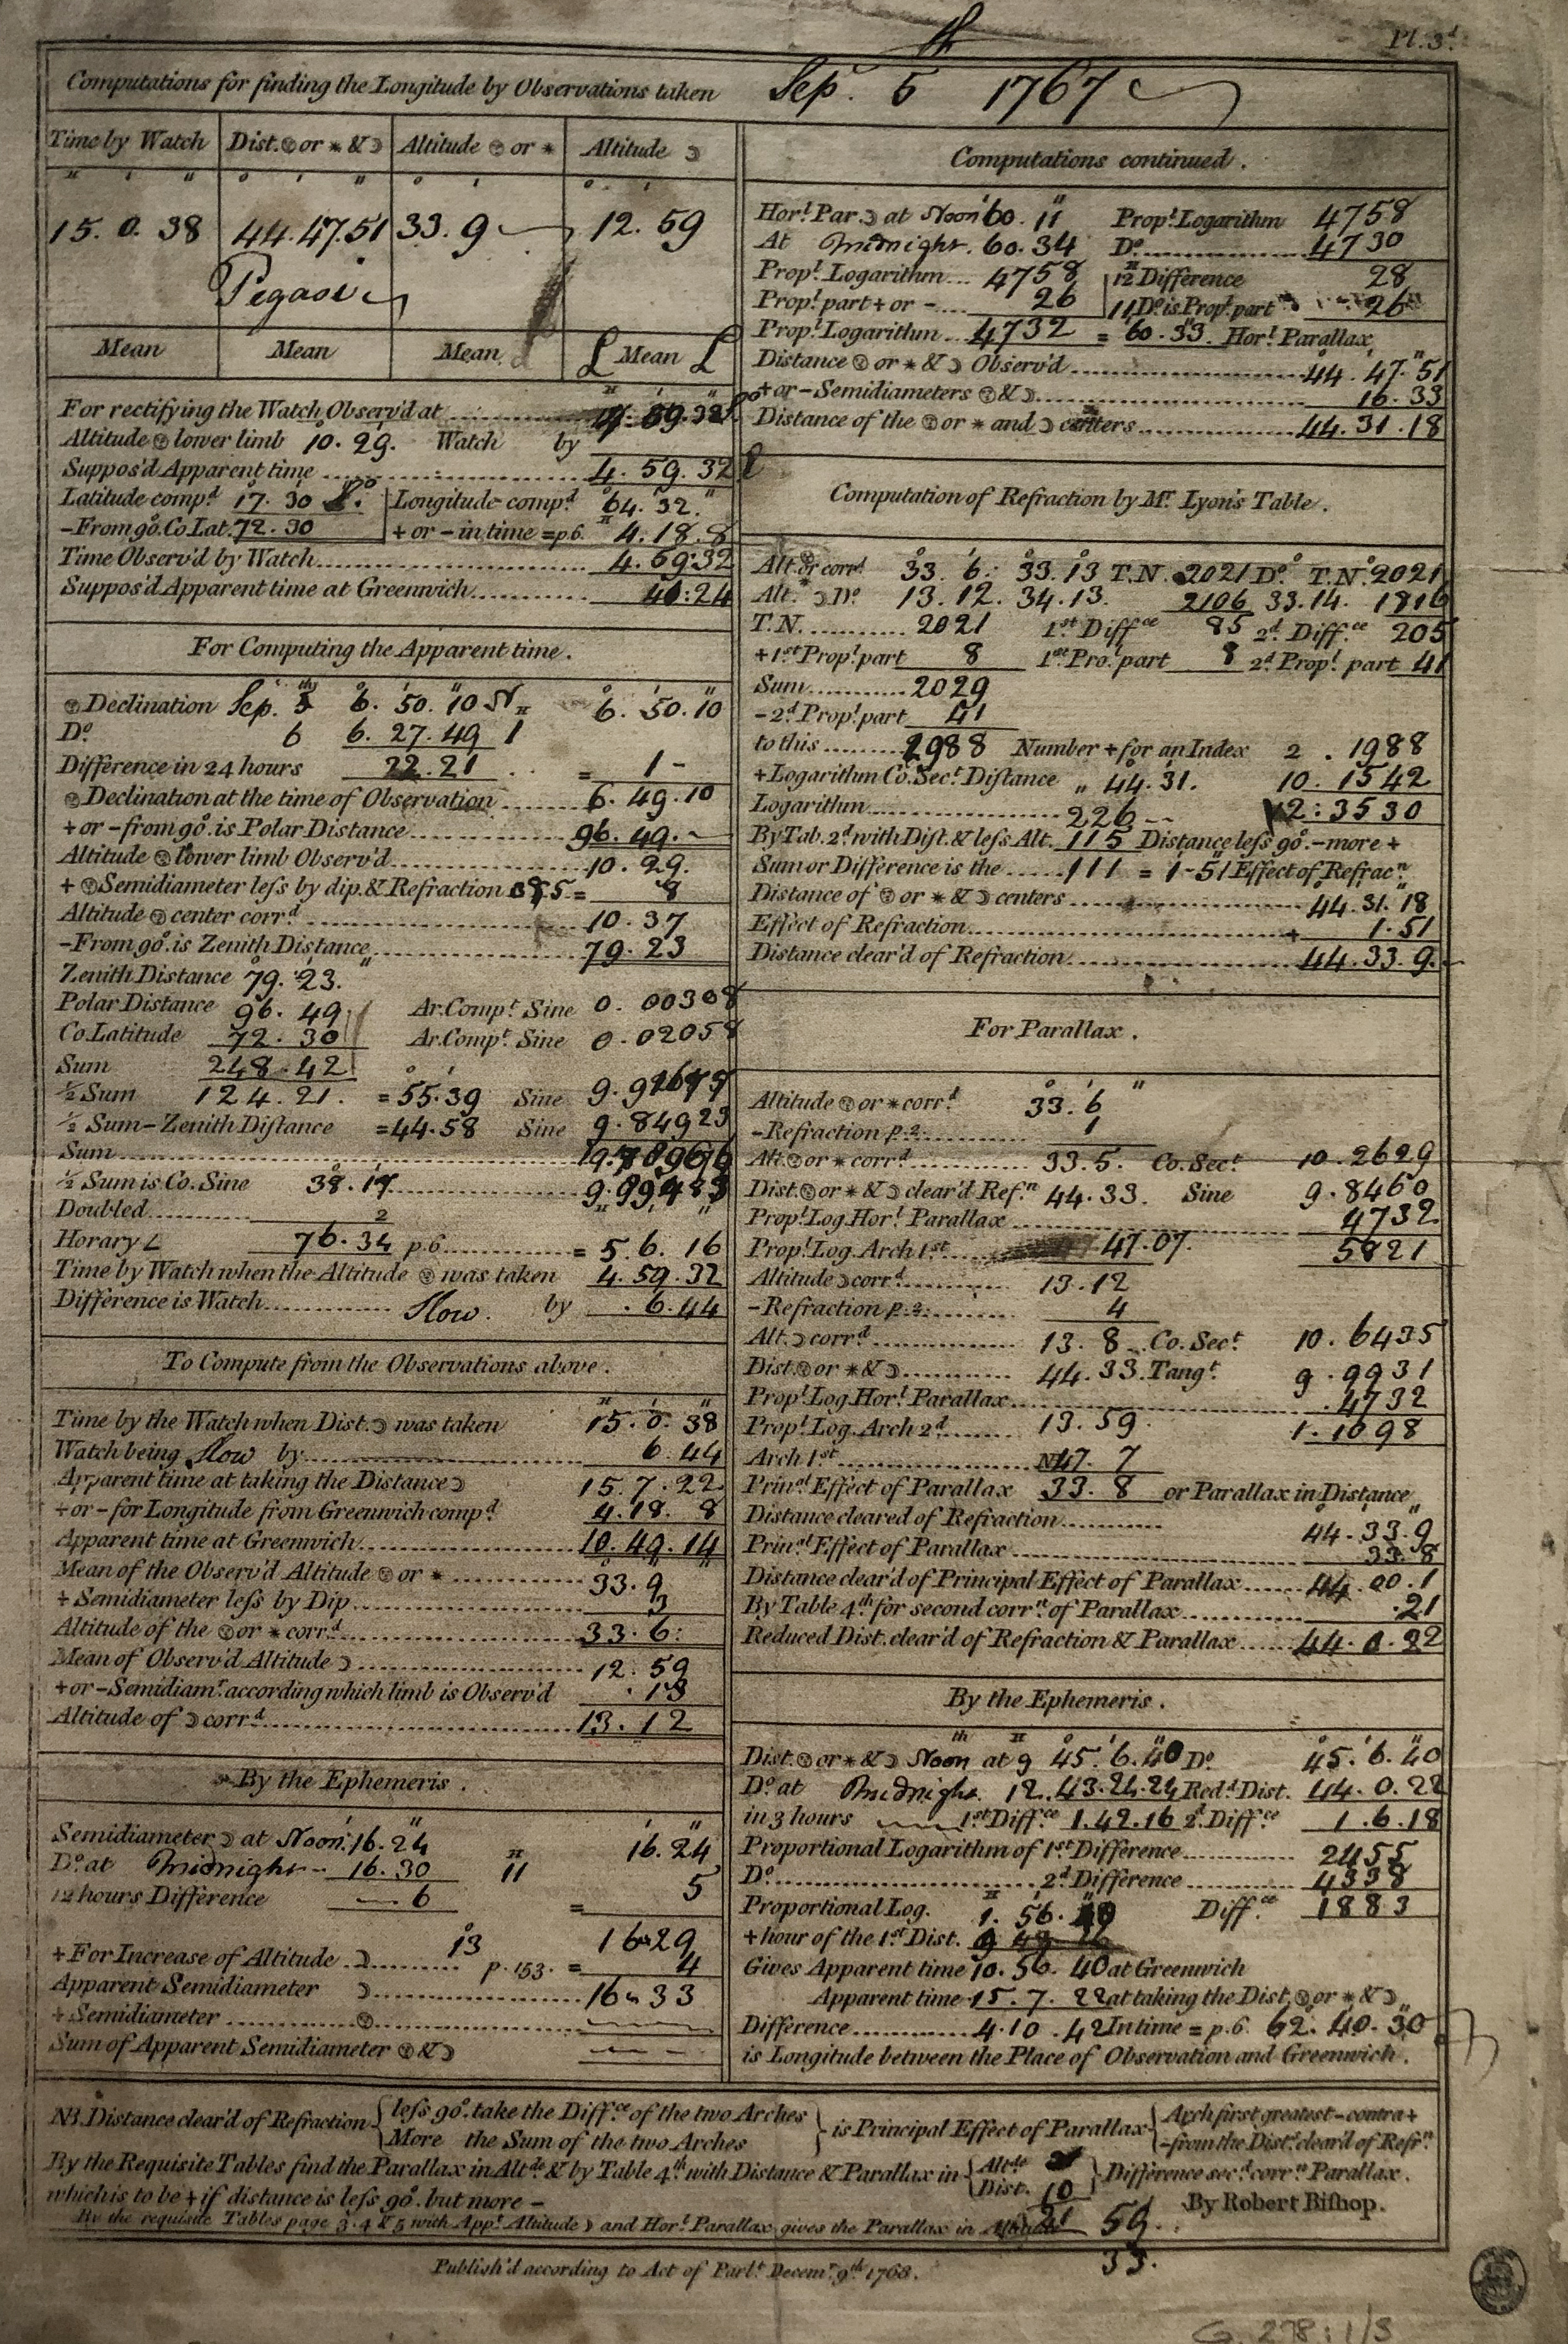 Pl. 3.d
Computations for finding the Longitude by Observations taken Sep.r 5th 1767
Time by Watch | Dist. ☉ or * & ☽ | Altitude ☉ or * | Altitude ☽
15. 0. 38 | 44. 47. 51 | 33. 9 | 12. 59
Pegasi
Mean | Mean | Mean | Mean
For rectifying the Watch Observ'd at 4. 59. 32
Altitude ☉ lower limb 10. 29. Watch by
Suppos'd Apparent time 4. 59. 32
Latitude comp.d 17. 30 Longitude comp.d 64. 32.
–From 90.° Co Lat. 72. 30 + or – in time = p.6. 4. 18. 8
Time Observ'd by Watch 4. 59: 32
Suppos'd Apparent time at Greenwich 41: 24
For Computing the Apparent time.
☉ Declination Sep. 5th 6. 50. 10 N 6. 50. 10
D.o 6 6. 27. 49 1
Difference in 24 hours 22. 21 = 1 –
☉ Declination at the time of Observation 6. 49. 10
+ or – from 90.° is Polar Distance 96. 49.
Altitude ☉ lower limb Observ'd 10. 29.
+ ☉ Semidiameter less by dip. & Refraction = 8
Altitude ☉ center corr.d 10. 37
–From 90.° is Zenith Distance 79. 23
Zenith Distance 79. 23.
Polar Distance 96. 49 Ar. Comp.t Sine 0. 00308
Co. Latitude 72. 30 Ar. Comp.t Sine 0. 02058
Sum 248. 42
½ Sum 124. 21. = 55. 39 Sine 9. 91677
½ Sum – Zenith Distance = 44. 58 Sine 9. 84923
Sum 19.
½ Sum is Co. Sine 38. 17
Doubled 2
Horary ∠ 76. 34 p.6 = 5. 6. 16
Time by Watch when the Altitude ☉ was taken 4. 59. 32
Difference is Watch Slow. by . 6. 44
To Compute from the Observations above.
Time by the Watch when Dist. ☽ was taken 15. 0. 38
Watch being Slow by 6. 44
Apparent time at taking the Distance ☽ 15. 7. 22
+ or – for Longitude from Greenwich comp.d 4. 18. 8
Apparent time at Greenwich 10. 49. 14
Mean of the Observ'd Altitude ☉ or * 33. 9
+ Semidiameter less by Dip 3
Altitude of the ☉ or * corr.d 33. 6:
Mean of Observ'd Altitude ☽ 12. 59
+ or – Semidiam.r according which limb is Observ'd . 13
Altitude of ☽ corr.d 13. 12
By the Ephemeris.
Semidiameter ☽ at Noon. 16. 24 16. 24
D.o at Midnight 16. 30 11 5
12 hours Difference 6 =
16 29
+ For Increase of Altitude ☽ 13 p. 153. = 4
Apparent Semidiameter ☽ 16 33
+ Semidiameter ☉
Sum of Apparent Semidiameter ☉ & ☽
Computations continued.
Hor.l Par. ☽ at Noon 60. 11 Prop.l Logarithm 4758
At Midnight. 60. 34 D.o 4730
Prop.l Logarithm 4758 12 Difference 28
Prop.l part + or – 26 11 D.o is Prop.l part 26
Prop.l Logarithm 4732 = 60. 33. Hor.l Parallax
Distance ☉ or * & ☽ Observ'd 44. 47. 51
+ or – Semidiameters ☉ & ☽ 16. 33
Distance of the ☉ or * and ☽ centers 44. 31. 18
Computation of Refraction by M.r Lyon's Table.
Alt. ☉ or corr.d 33. 6: 33. 13 T.N. 2021 D.o T.N. 2021
Alt. ☽ D.o 13. 12. 34. 13. 2106 33. 14. 1816
T.N. 2021 1.st Diff.ce 85 2.d Diff.ce 205
+ 1.st Prop.l part 8 1.st Pro.l part 8 2.d Prop.l part 41
Sum 2029
– 2.d Prop.l part 41
to this 1988 Number + for an Index 2 . 1988
+ Logarithm Co. Sec.t Distance 44. 31. 10. 1542
Logarithm 226 12: 3530
By Tab. 2.d with Dist. & less Alt. 115 Distance less 90.° – more +
Sum or Difference is the 111 = 1 - 51 Effect of Refrac.n
Distance of ☉ or * & ☽ centers 44. 31. 18
Effect of Refraction + 1. 51
Distance clear'd of Refraction 44. 33. 9.
For Parallax.
Altitude ☉ or * corr.d 33. 6
– Refraction p. 2. 1
Alt. ☉ or * corr.d 33. 5. Co. Sec.t 10. 2629
Dist. ☉ or * & ☽ clear'd Ref.n 44. 33. Sine 9. 8460
Prop.l Log. Hor.l Parallax 4732
Prop.l Log. Arch 1.st 47. 07. 5821
Altitude ☽ corr.d 13. 12
– Refraction p. 2. 4
Alt. ☽ corr.d 13. 8 Co. Sec.t 10. 6435
Dist. ☉ or * & ☽ 44. 33. Tang.t 9. 9931
Prop.l Log. Hor.l Parallax . 4732
Prop.l Log. Arch 2.d 13. 59. 1. 1098
Arch 1.st 47. 7
Prin.al Effect of Parallax 33. 8 or Parallax in Distance
Distance cleared of Refraction 44. 33. 9
Prin.al Effect of Parallax 33. 8
Distance clear'd of Principal Effect of Parallax 44. 00. 1
By Table 4.th for second corr.n of Parallax . 21
Reduced Dist. clear'd of Refraction & Parallax 44. 0. 22
By the Ephemeris.
Dist. ☉ or * & ☽ Noon at 9th 45. 6. 40 D.o 45. 6. 40
D.o at Midnight. 12. 43. 24. 24 Red.d Dist. 44. 0. 22
in 3 hours 1.st Diff.ce 1. 42. 16 2.d Diff.ce 1. 6. 18
Proportional Logarithm of 1.st Difference 2455
D.o 2.d Difference 4338
Proportional Log. 1. 56. Diff.ce 1883
+ hour of the 1.st Dist. 9
Gives Apparent time 10. 56. 40 at Greenwich
Apparent time 15. 7. 22 at taking the Dist. ☉ or * & ☽
Difference 4. 10. 42 In time = p.6. 62. 40. 30
is Longitude between the Place of Observation and Greenwich.
NB. Distance clear'd of Refraction { less 90.° take the Diff.ce of the two Arches / More the Sum of the two Arches } is Principal Effect of Parallax { Arch first greatest – contra + / – from the Dist.ce clear'd of Refr.n
By the Requisite Tables find the Parallax in Alt.de & by Table 4.th with Distance & Parallax in { Alt.de / Dist. 10 } Difference sec.d corr.n Parallax.
which is to be + if distance is less 90.° but more –
By Robert Bishop.
By the requisite Tables page 3. 4 & 5 with App.t Altitude ☽ and Hor.l Parallax, gives the Parallax in 21 59.
33.
Publish'd according to Act of Parl.t Decem.r 9.th 1768.
G. 278: 1/3